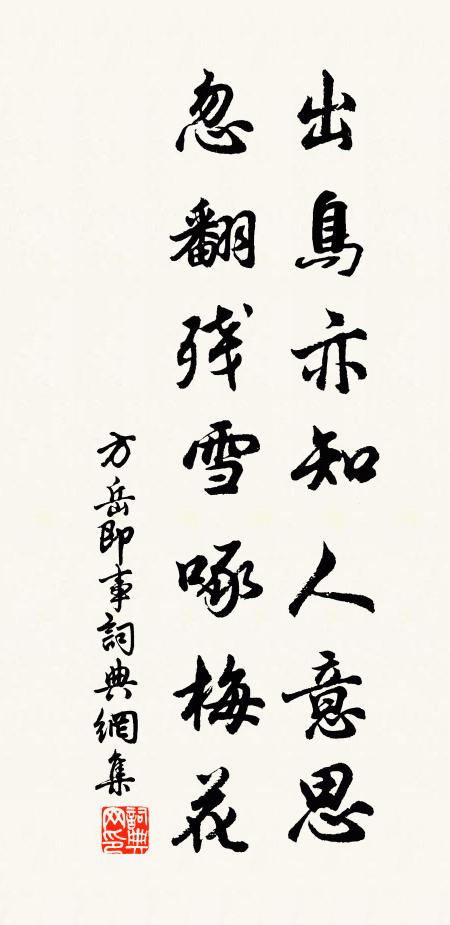 出鳥亦知人意思
忽翻残雪啄梅花
方岳即事詞典網集
詞典網印